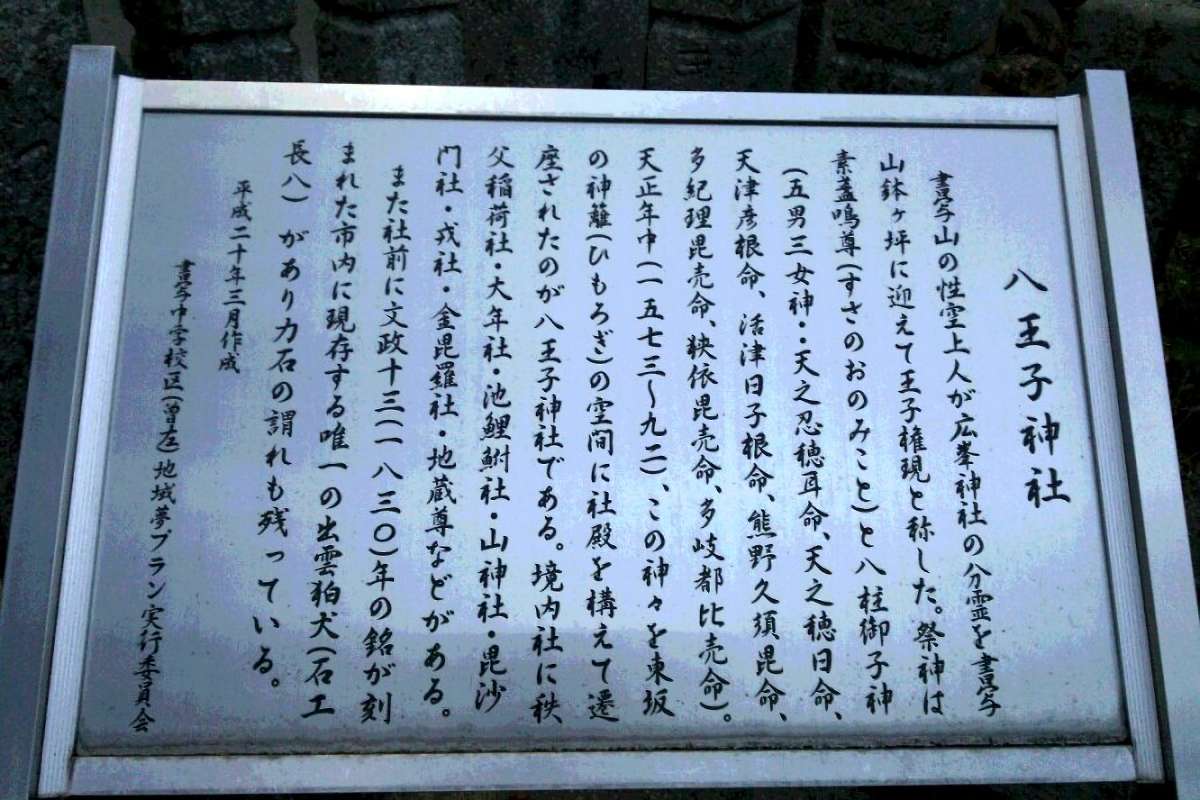 八王子神社
書写山の性空上人が広峯神社の分霊を書写
山鉢ヶ坪に迎えて王子権現と称した。祭神は
素盞鳴尊(すさのおのみこと)と八柱御子神
(五男三女神・・天之忍穂耳命、天之穂日命、
天津彦根命、活津日子根命、熊野久須毘命、
多紀理毘売命、狭依毘売命、多岐都比売命)。
天正年中(一五七三〜九二)、この神々を東坂
の神籬(ひもろぎ)の空間に社殿を構えて遷
座されたのが八王子神社である。境内社に秩
父稲荷社・大年社・池鯉鮒社・山神社・毘沙
門社・戎社・金毘羅社・地蔵尊などがある。
また社前に文政十三(一八三〇)年の銘が刻
まれた市内に現存する唯一の出雲狛犬(石工
長八)があり力石の謂れも残っている。
平成二十年三月作成
書写中学校区(曽左)地域夢プラン実行委員会